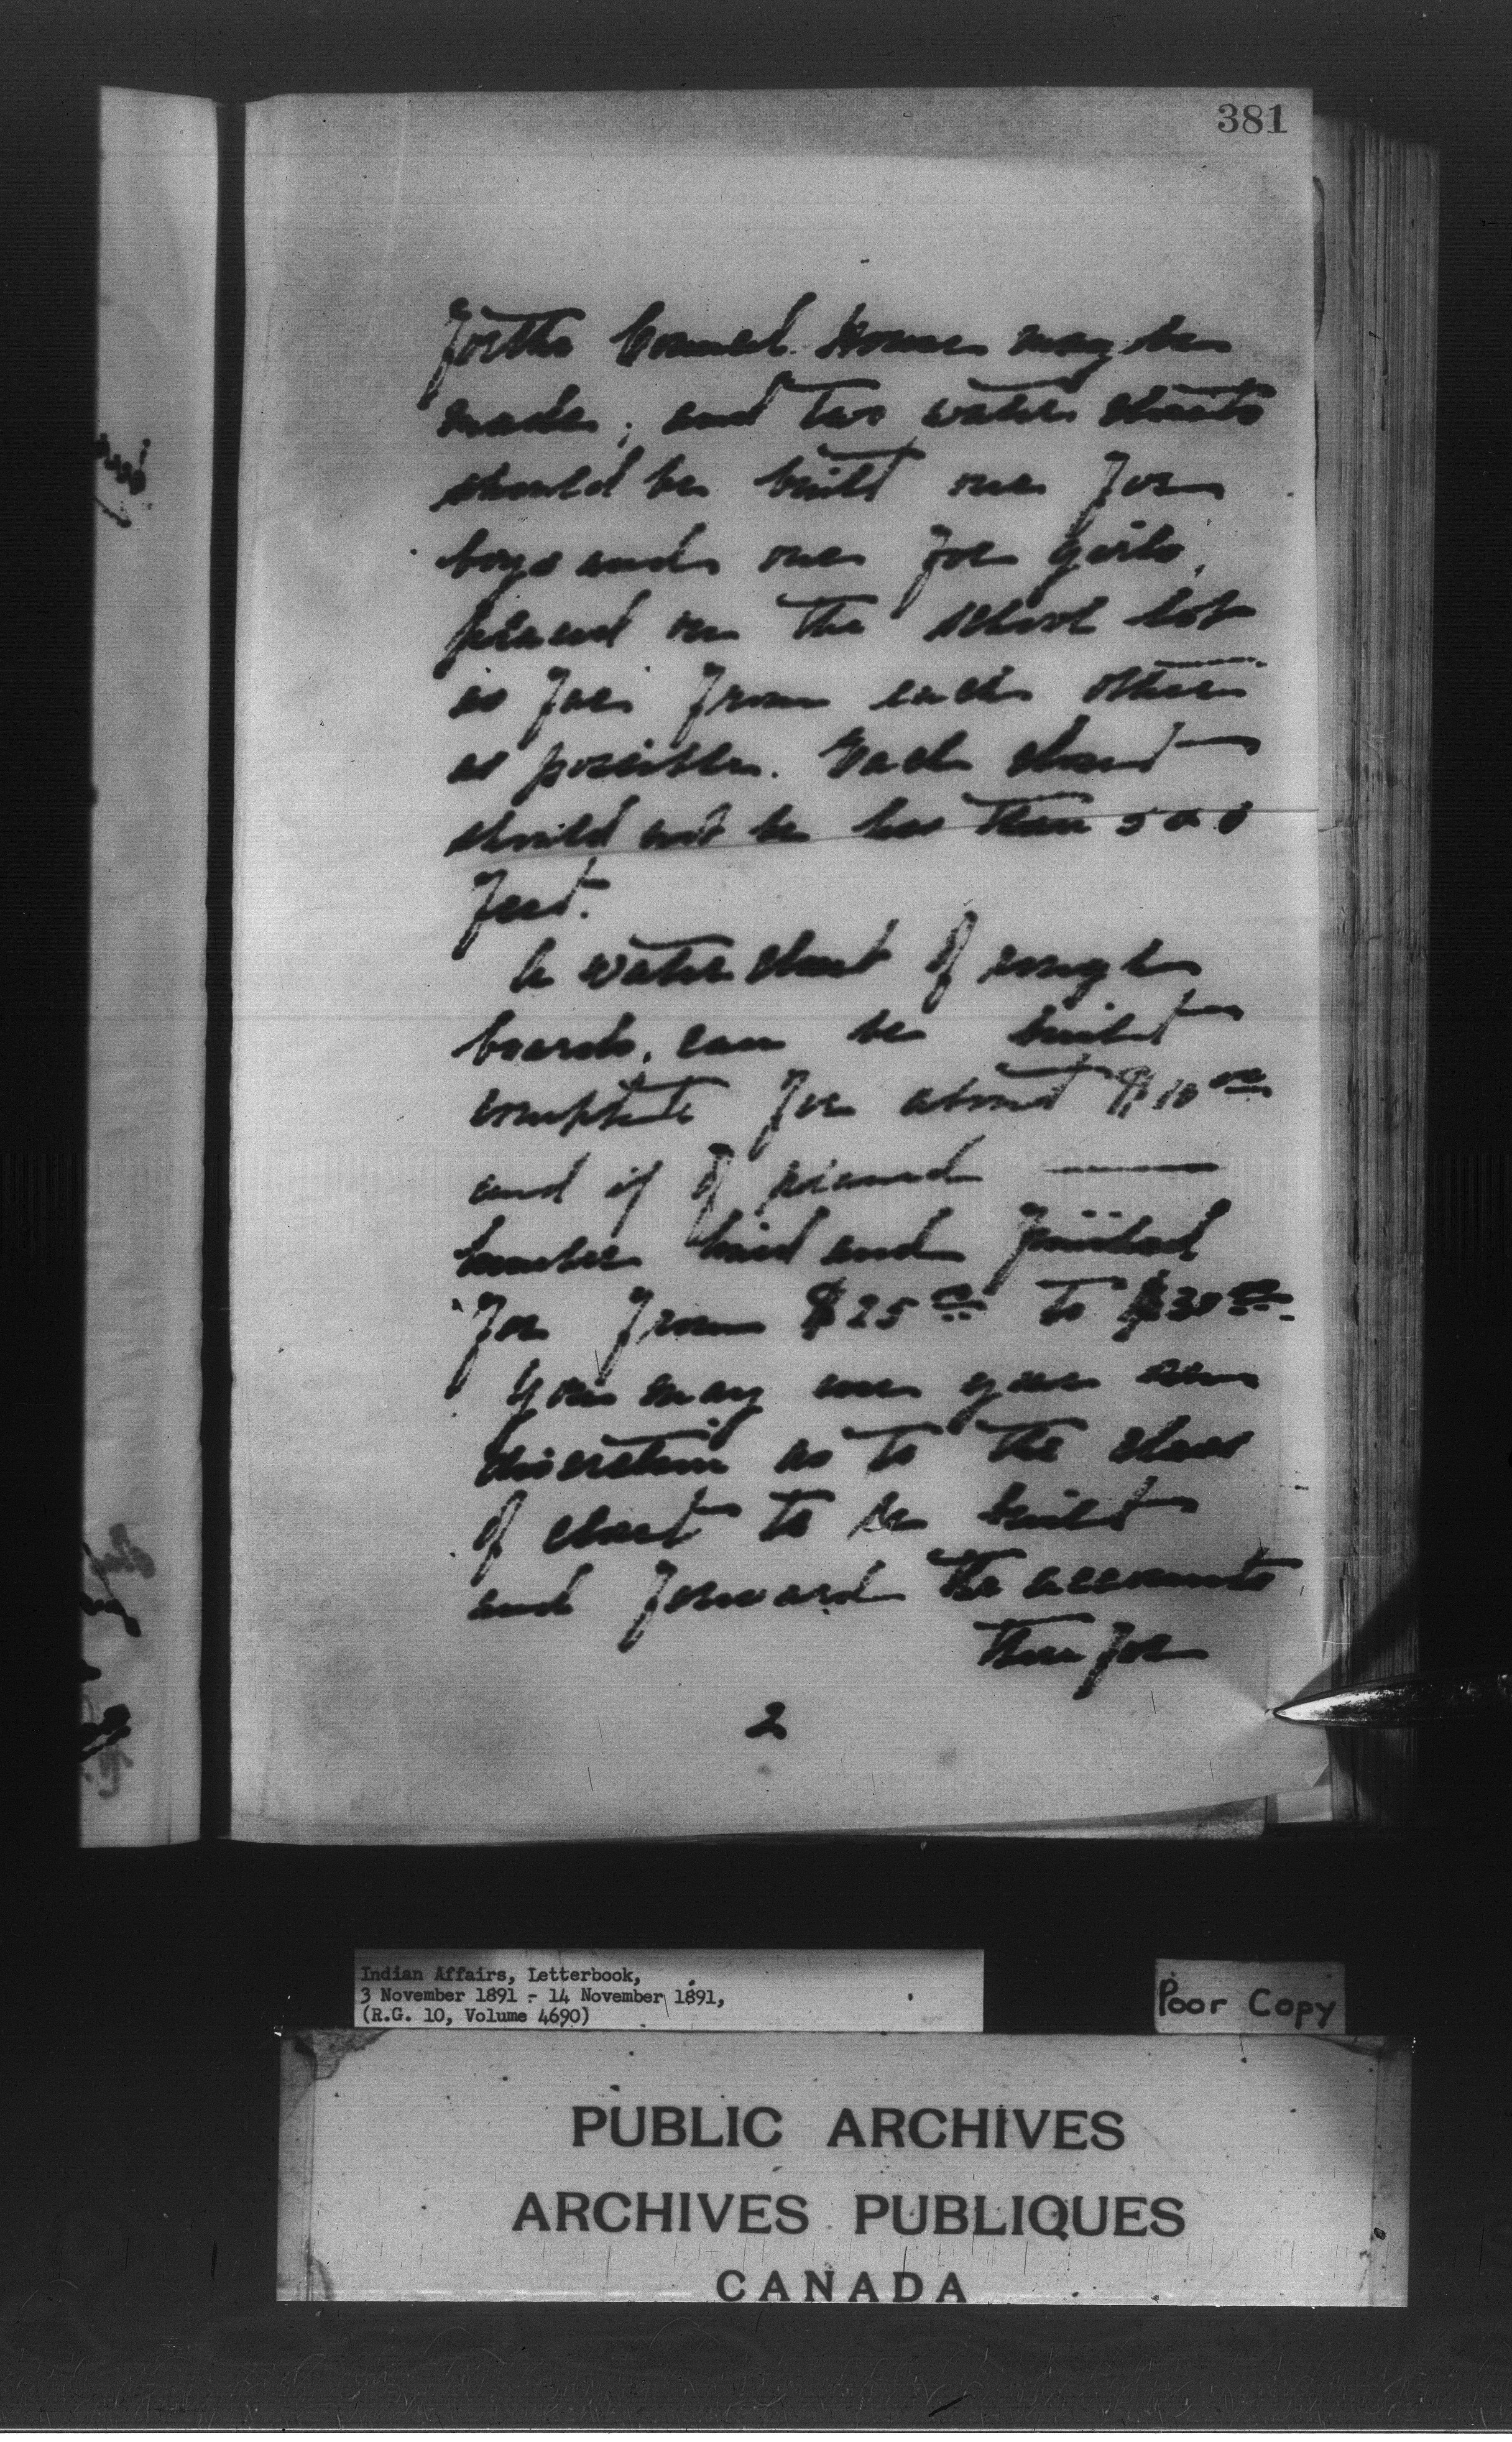 381
for the Council House may be
made; and two water closets
should be built one for
boys and one for girls,
placed on the school lot
as far from each other
as possible. Each closet
should not be less than
feet.
A water closet of rough
boards, can be built
complete for about $10 00
and if of planed
lumber and finished
for from $25 00 to $30 00
You may use your own
discretion as to the class
of closet to be built
and forward the accounts
therefor
2
Indian Affairs, Letterbook,
3 November 1891 - 14 November 1891,
(R.G. 10, Volume 4690)
Poor Copy
PUBLIC ARCHIVES
ARCHIVES PUBLIQUES
CANADA